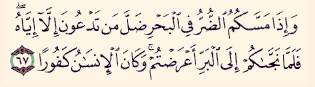 وَإِذَا مَسَّكُمُ ٱلضُّرُّ فِى ٱلْبَحْرِ ضَلَّ مَن تَدْعُونَ إِلَّآ إِيَّاهُ ۖ
فَلَمَّا نَجَّىٰكُمْ إِلَى ٱلْبَرِّ أَعْرَضْتُمْ ۚ وَكَانَ ٱلْإِنسَٰنُ كَفُورًا ٦٧